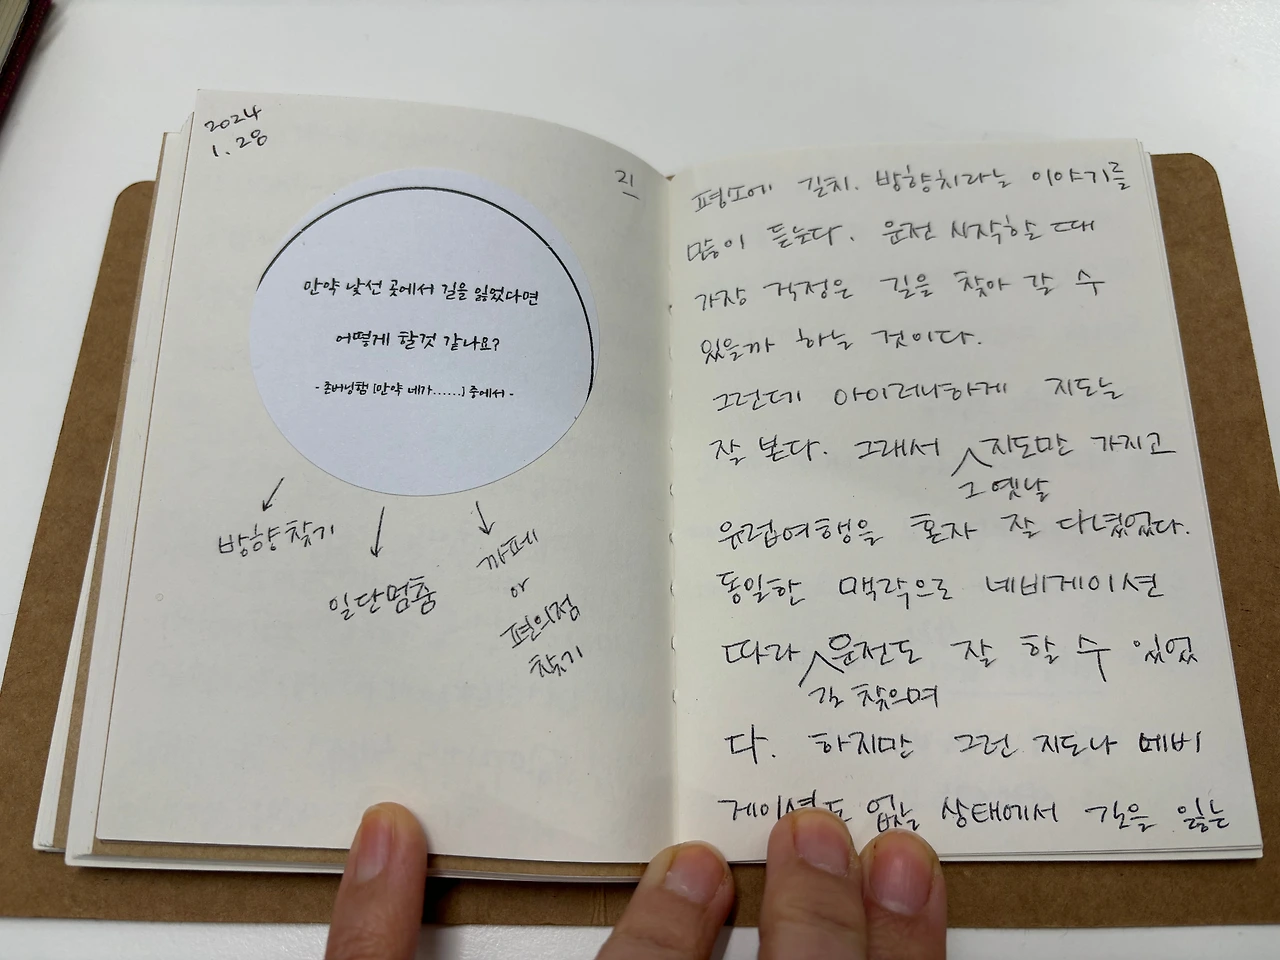 2024
1.28
21
만약 낯선 곳에서 길을 잃었다면
어떻게 할것 같나요?
- 존버닝햄 [만약 네가......] 중에서 -
방향찾기
일단멈춤
까페
or
편의점
찾기
평소에 길치. 방향치라는 이야기를
많이 듣는다. 운전 시작할 때
가장 걱정은 길을 찾아 갈 수
있을까 하는 것이다.
그런데 아이러니하게 지도는
잘 본다. 그래서 지도만 가지고
그 옛날
유럽여행을 혼자 잘 다녔었다.
동일한 맥락으로 네비게이션
따라 운전도 잘 할 수 있었
길 찾으며
다. 하지만 그런 지도나 네비
게이션도 없는 상태에서 길을 잃는